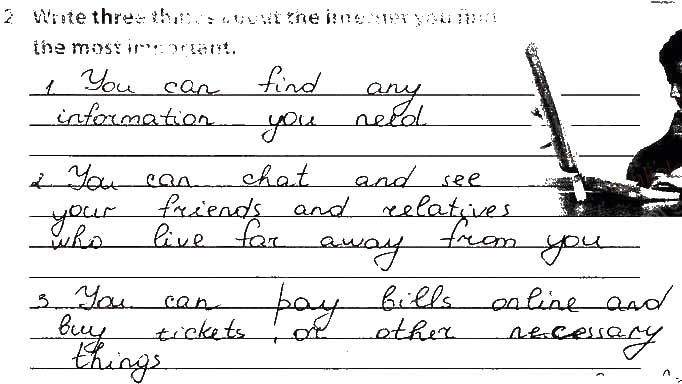 2 Write three things about the internet you find
the most important.
1 You can find any
information you need
2 You can chat and see
your friends and relatives
who live far away from you
3 You can pay bills online and
buy tickets, or other necessary
things